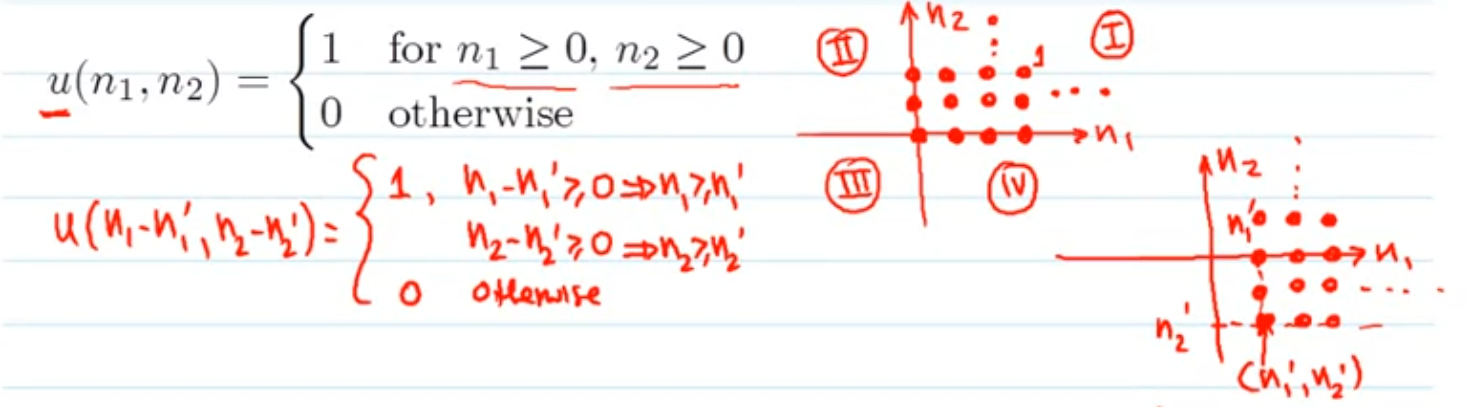 u(n₁, n₂) = { 1 for n₁ ≥ 0, n₂ ≥ 0
0 otherwise
u(n₁-n₁', n₂-n₂') = { 1, n₁-n₁' ≥ 0 ⇒ n₁ ≥ n₁'
n₂-n₂' ≥ 0 ⇒ n₂ ≥ n₂'
0 otherwise
n₂
II
I
1
n₁
III
IV
n₂
n₁'
n₁
n₂'
(n₁', n₂')